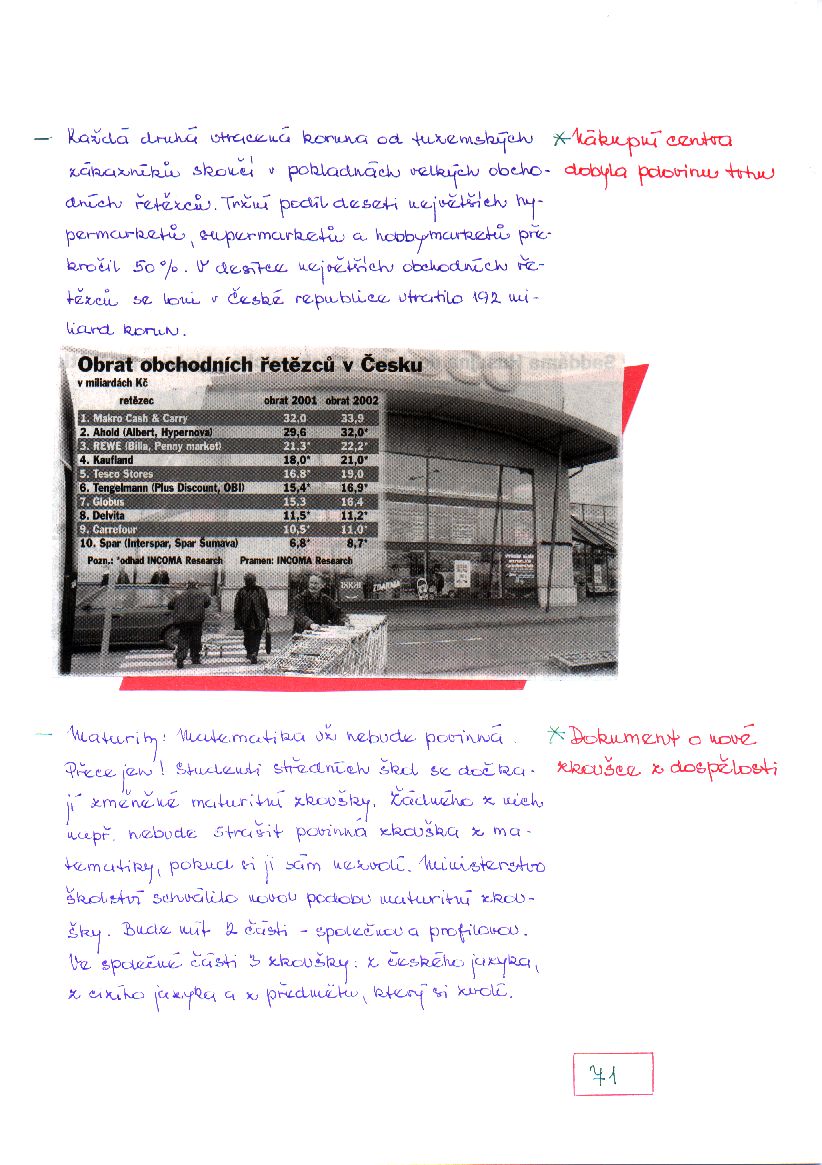 – Každá druhá utracená koruna od tuzemských
zákazníků skončí v pokladnách velkých obcho-
dních řetězců. Tržní podíl deseti největších hy-
permarketů, supermarketů a hobbymarketů pře-
kročil 50%. V desítce největších obchodních ře-
tězců se loni v České republice utratilo 192 mi-
liard korun.
* Nákupní centra
dobyla polovinu trhu
Obrat obchodních řetězců v Česku
v miliardách Kč
řetězec obrat 2001 obrat 2002
1. Makro Cash & Carry 32,0 33,9
2. Ahold (Albert, Hypernova) 29,6 32,0*
3. REWE (Billa, Penny market) 21,3* 22,2*
4. Kaufland 18,0* 21,0*
5. Tesco Stores 16,8* 19,0
6. Tengelmann (Plus Discount, OBI) 15,4* 16,9*
7. Globus 15,3 16,4
8. Delvita 11,5* 11,2*
9. Carrefour 10,5* 11,0*
10. Spar (Interspar, Spar Šumava) 6,8* 8,7*
Pozn.: *odhad INCOMA Research Pramen: INCOMA Research
– Maturity: Matematika už nebude povinná.
Přece jen! Studenti středních škol se dočka-
jí změněné maturitní zkoušky. Žádného z nich
např. nebude strašit povinná zkouška z ma-
tematiky, pokud si ji sám nezvolí. Ministerstvo
školství schválilo novou podobu maturitní zkou-
šky. Bude mít 2 části – společnou a profilovou.
Ve společné části 3 zkoušky: z českého jazyka,
z cizího jazyka a z předmětu, který si zvolí.
* Dokument o nové
zkoušce z dospělosti
71